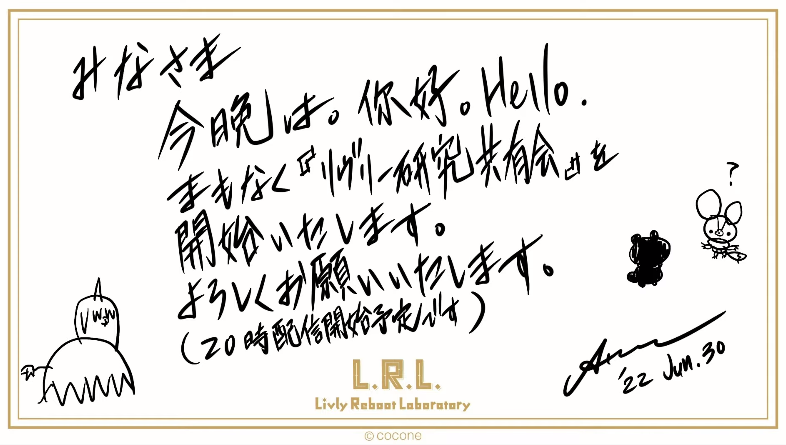 みなさま
今晩は。你好。Hello.
まもなく『リヴリー研究共有会』を
開始いたします。
よろしくお願いいたします。
(20時配信開始予定です)
?
'22 Jun.30
L.R.L.
Livly Reboot Laboratory
© cocone